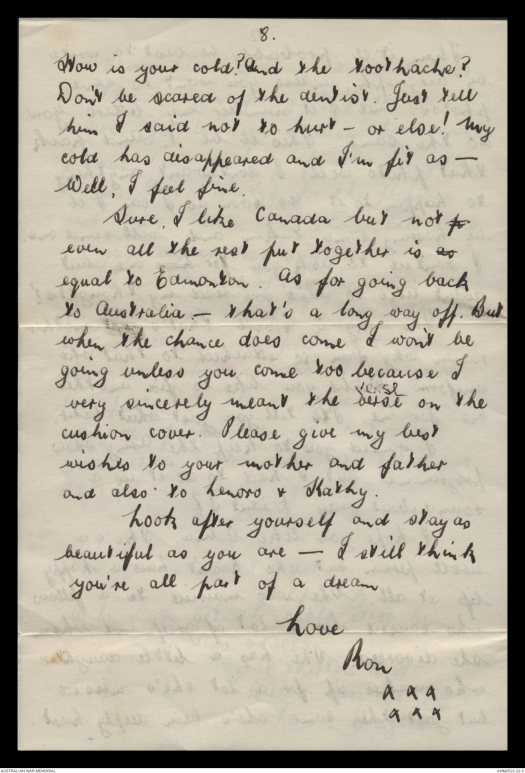 8.
How is your cold? And the toothache?
Don't be scared of the dentist. Just tell
him I said not to hurt – or else! My
cold has disappeared and I'm fit as —
Well, I feel fine.
Sure, I like Canada but not
even all the rest put together is as
equal to Edmonton. As for going back
to Australia – that's a long way off. But
when the chance does come I won't be
going unless you come too because I
verse
very sincerely meant the verse on the
cushion cover. Please give my best
wishes to your mother and father
and also to Lenora & Kathy.
Look after yourself and stay as
beautiful as you are – I still think
you're all part of a dream
Love
Ron
x x x
x x x
AUSTRALIAN WAR MEMORIAL